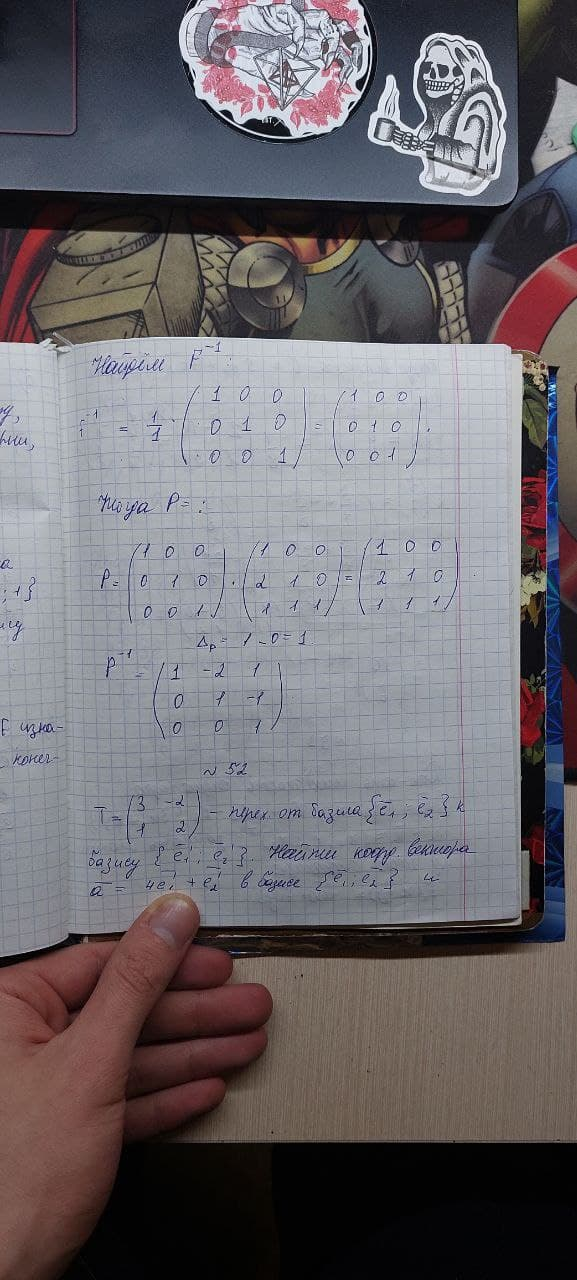 Найдём F⁻¹:
F⁻¹ = 1/1 · (1 0 0; 0 1 0; 0 0 1) = (1 0 0; 0 1 0; 0 0 1).
Тогда P= :
P= (1 0 0; 0 1 0; 0 0 1) · (1 0 0; 2 1 0; 1 1 1) = (1 0 0; 2 1 0; 1 1 1)
Δp = 1 - 0 = 1
P⁻¹ = (1 -2 1; 0 1 -1; 0 0 1)
№ 52
T = (3 -2; 1 2) - перех. от базиса {e̅₁; e̅₂} к
базису {e̅₁'; e̅₂'}. Найти коорд. вектора
a̅ = 4e̅₁' + e̅₂' в базисе {e̅₁, e̅₂} и